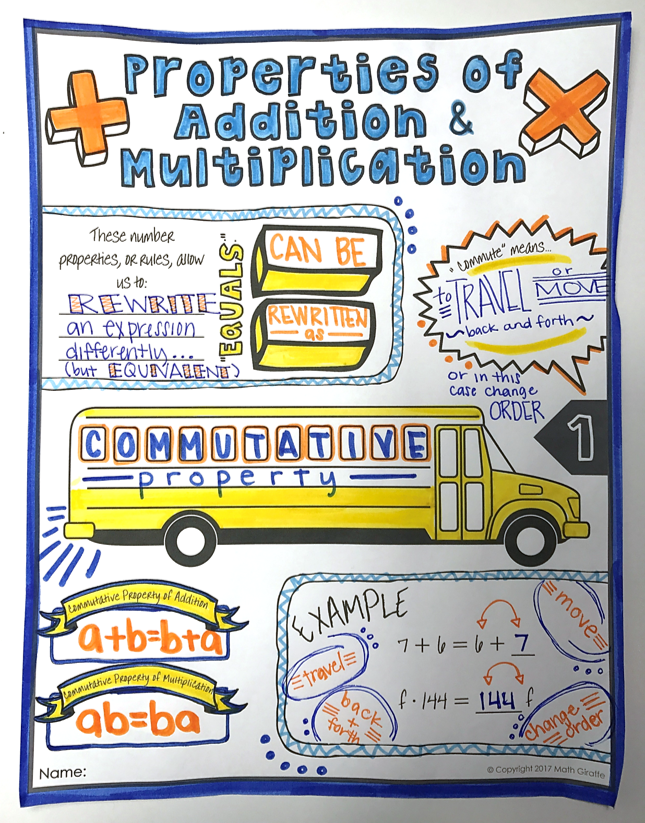 Properties of
Addition &
Multiplication
These number
properties, or rules, allow
us to:
REWRITE
an expression
differently...
(but EQUIVALENT)
"EQUALS:"
CAN BE
REWRITTEN
as
"commute" means...
to TRAVEL or MOVE
back and forth
or in this
case change
ORDER
1
COMMUTATIVE
property
Commutative Property of Addition
a+b=b+a
Commutative Property of Multiplication
ab=ba
EXAMPLE
7 + 6 = 6 + 7
f · 144 = 144 f
move
travel
back
+
forth
change
order
Name:
© Copyright 2017 Math Giraffe